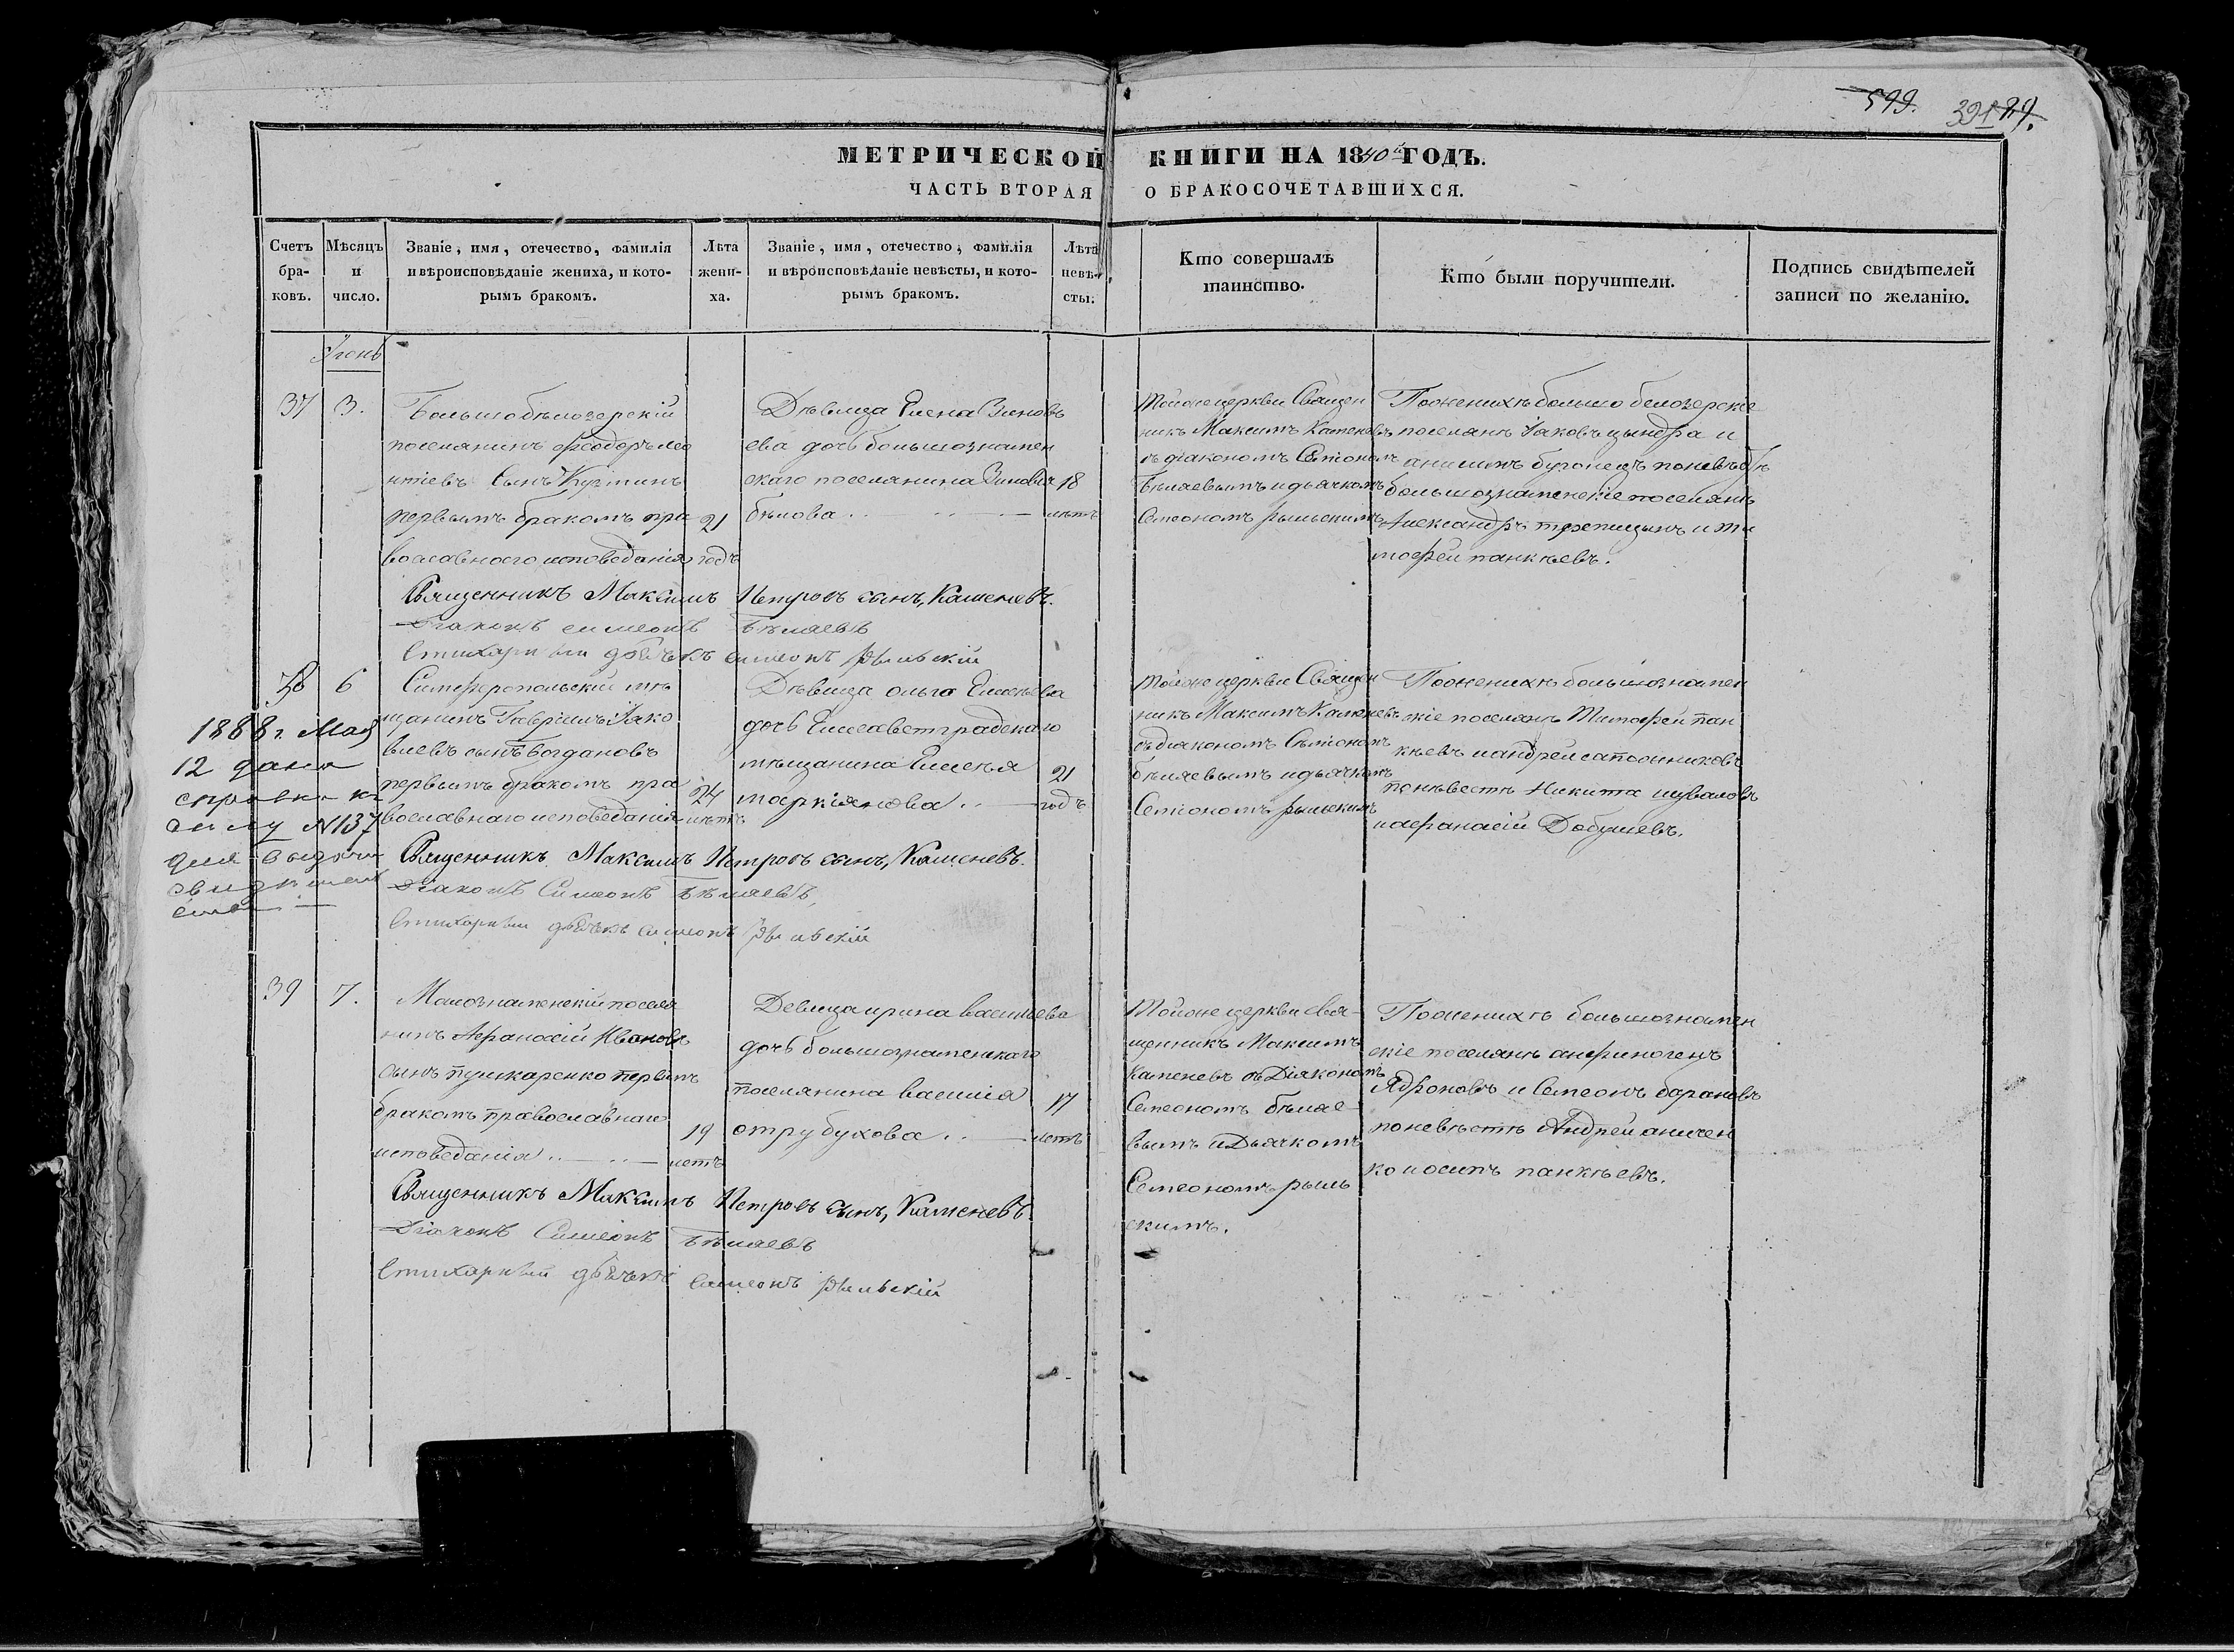 599. 391 29.
МЕТРИЧЕСКОЙ КНИГИ НА 1840й ГОДЪ.
ЧАСТЬ ВТОРАЯ О БРАКОСОЧЕТАВШИХСЯ.
Счетъ
бра-
ковъ.
Мѣсяцъ
и
число.
Званіе, имя, отечество, фамилія
и вѣроисповѣданіе жениха, и кото-
рымъ бракомъ.
Лѣта
жени-
ха.
Званіе, имя, отечество, фамилія
и вѣроисповѣданіе невѣсты, и кото-
рымъ бракомъ.
Лѣта
невѣ-
сты.
Кто совершалъ
таинство.
Кто были поручители.
Подпись свидѣтелей
записи по желанію.
Іюнь
37
3.
Большобѣлозерскій
поселянинъ феодоръ лео
нтіевъ Сынъ
первымъ бракомъ пра
вославного исповеданія
21
годъ
Дѣвица Елена Зиновь
ева дочь большознамен
скаго поселянина Зиновія
бѣлова
18
летъ
Тойже церкви Священ
никъ Максимъ Каменевъ
съ діакономъ Семіономъ
Бѣляевымъ и дьячкомъ
Семеономъ рыльскимъ
По женихѣ большо белозерскіе
поселяне Іаковъ цындра и
поневѣстѣ
большознаменскіе поселяне
Александръ и ти
мофей панкѣевъ.
Священникъ Максимъ Петровъ сынъ, Каменевъ.
Діаконъ симеонъ Бѣляевъ
Стихарный дьячекъ симеонъ Рыльскій
38
6
Симферопольскій мѣ
щанинъ Гавріилъ Іако
влевъ сынъ богдановъ
первымъ бракомъ пра
вославнаго исповеданія
24
летъ
Дѣвица ольга Елисеева
дочь Елисаветградскаго
мѣщанина Елисея
маркіянова
21
годъ
Тойже церкви Священ
никъ Максимъ Каменевъ
съ діакономъ Семіономъ
бѣляевымъ и дьячкомъ
Семіономъ рыльскимъ
По женихѣ большознамен
скіе поселяне Тимофей пан
кѣевъ и андрей сапожниковъ
поневестѣ Никита шуваловъ
и афанасій Добушевъ.
1888 г. Мая
12 дана
справка къ
дѣлу №137
для выдачи
свидѣтель
ства
Священникъ Максимъ Петровъ сынъ, Каменевъ.
Діаконъ Симеонъ Бѣляевъ,
Стихарный дьячекъ симеонъ Рыльскій
39
7.
Малознаменскій поселя
нинъ Афанасій Ивановъ
сынъ пушкаренко первымъ
бракомъ православнаго
исповеданія
19
летъ
Девица ирина васильева
дочь большознаменскаго
поселянина василія
отрубухова
17
летъ
Тойже церкви свя-
щенникъ Максимъ
Каменевъ съ Діякономъ
Семеономъ бѣляе-
вымъ и Дьячкомъ
Семеономъ рыль
скимъ.
По женихѣ большознамен
скіе поселяне анфиногенъ
Ядроновъ и Семеонъ барановъ
поневѣстѣ Андрей аничен
ко и осипъ панкѣевъ.
Священникъ Максимъ Петровъ сынъ, Каменевъ.
Діаконъ Симеонъ Бѣляевъ
Стихарный дьячекъ симеонъ Рыльскій